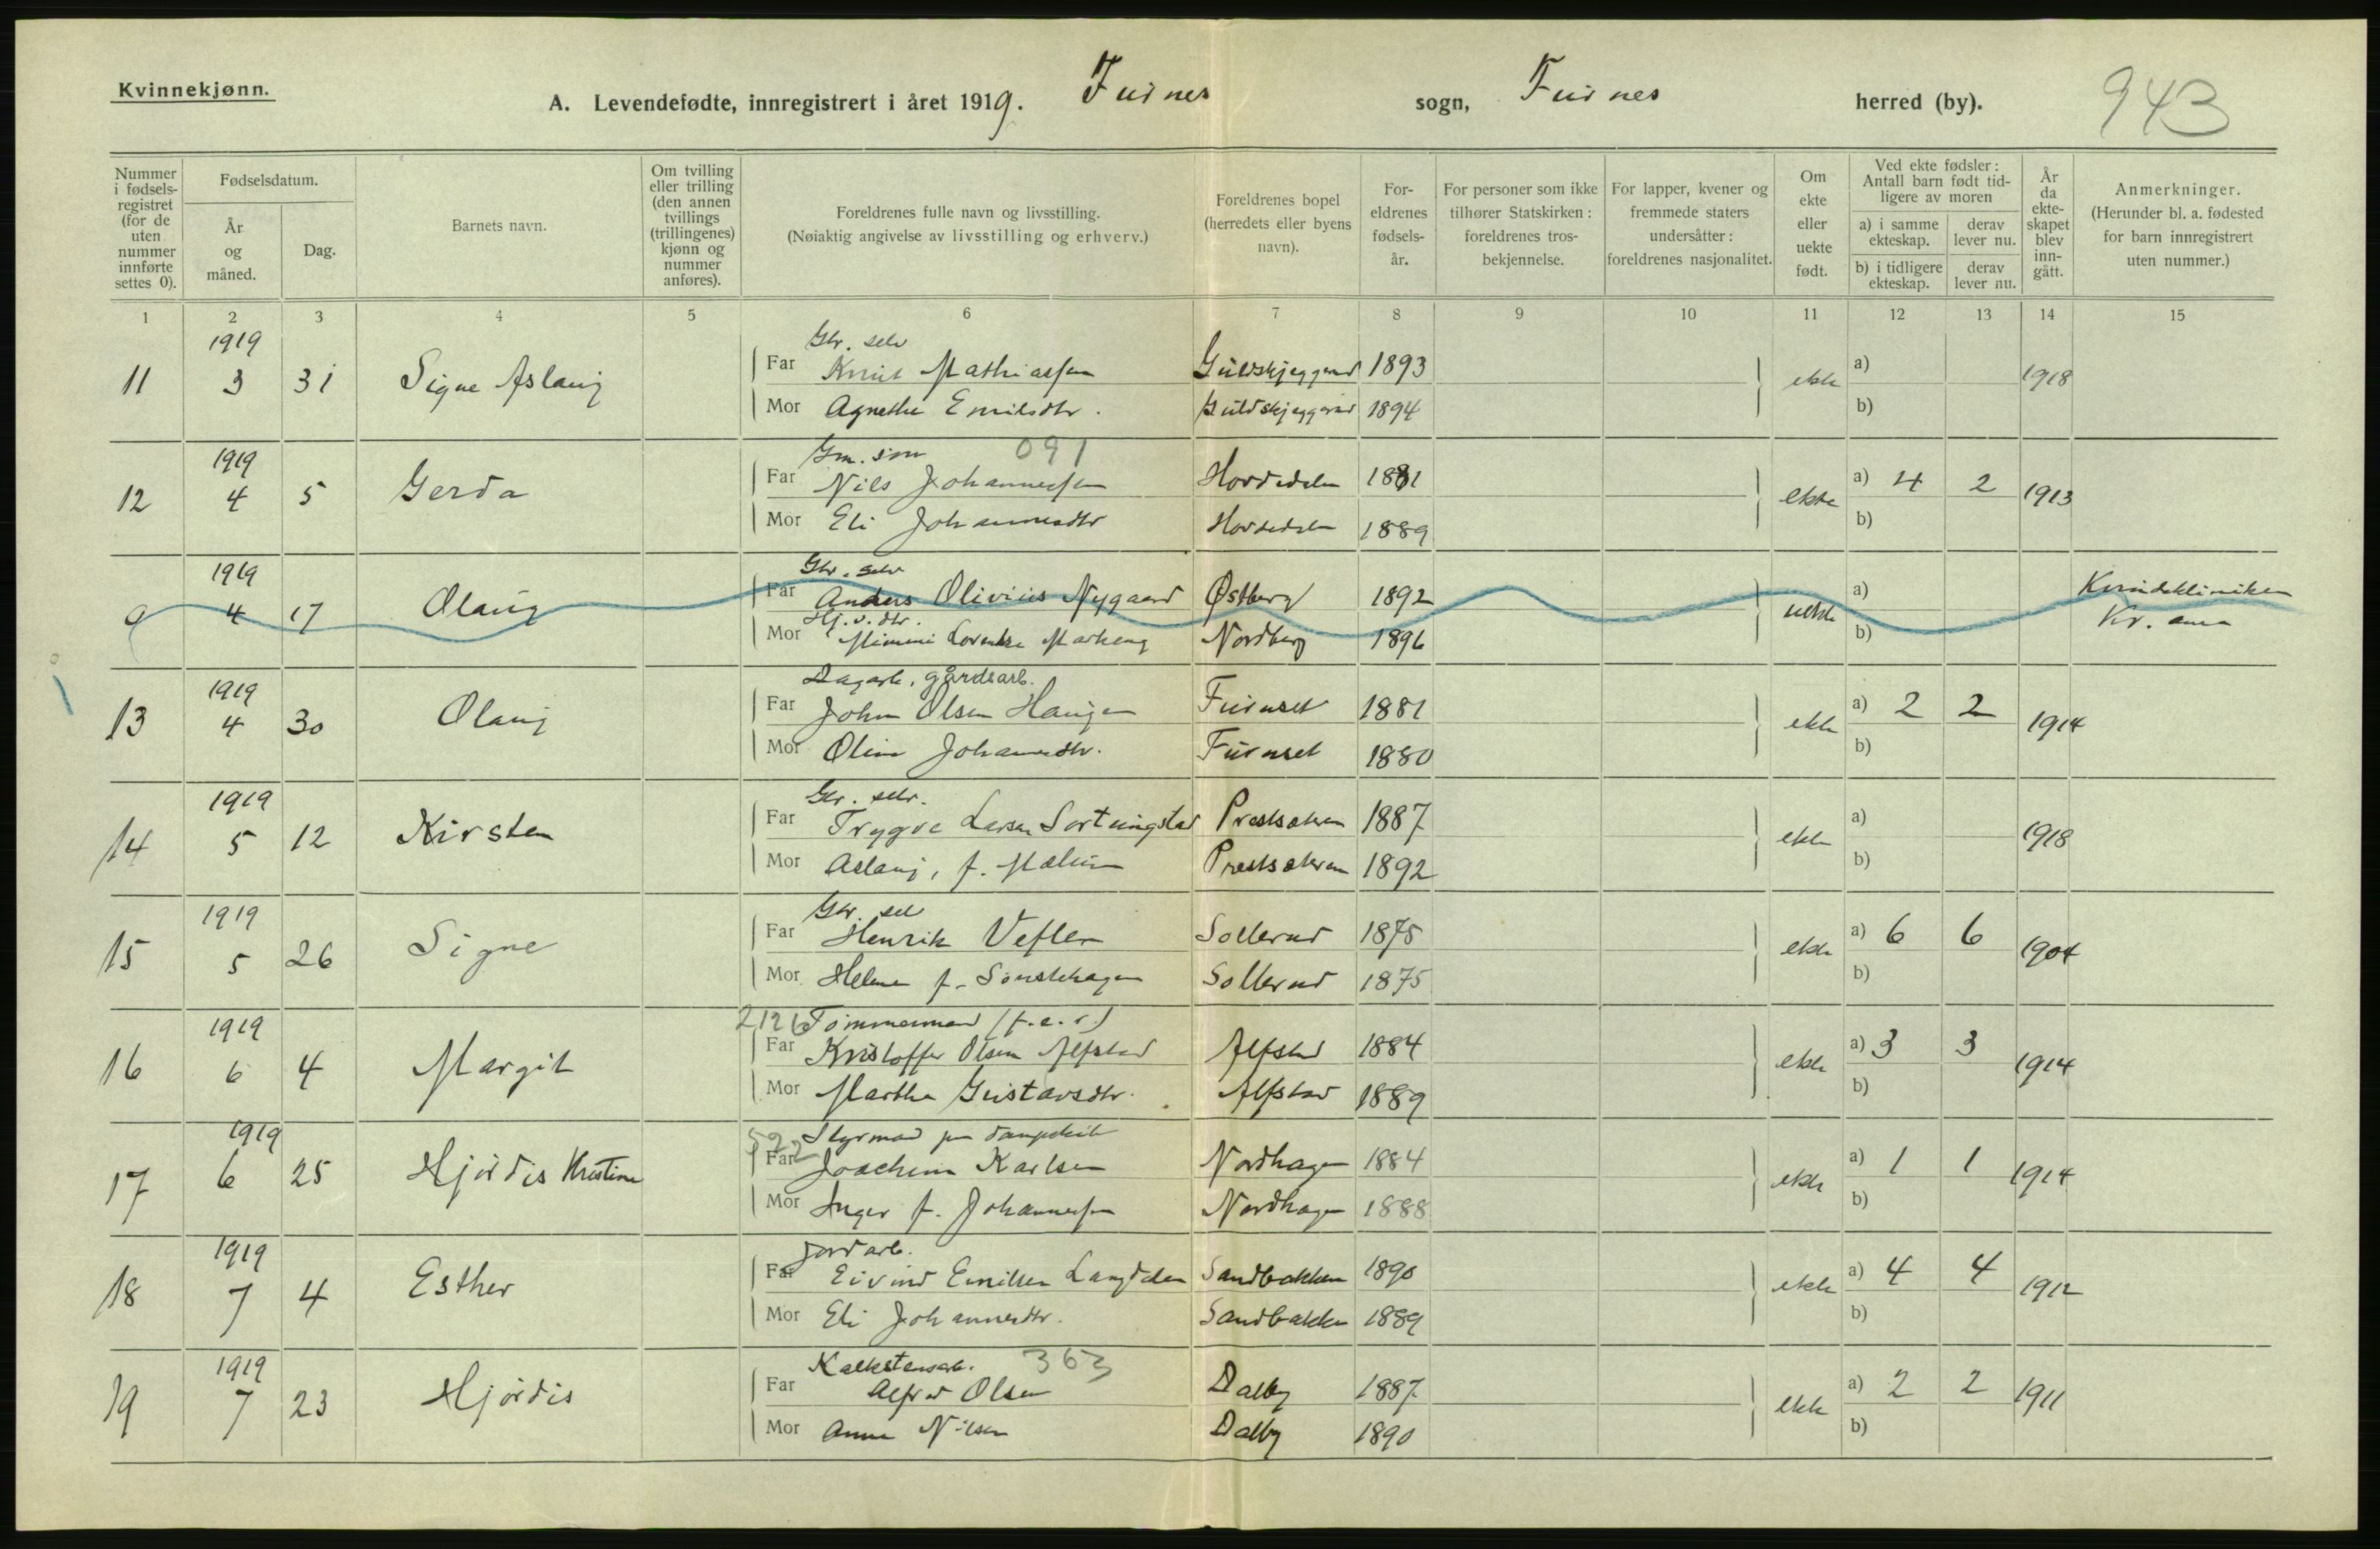 Kvinnekjønn.
A. Levendefødte, innregistrert i året 1919. Furnes sogn, Furnes herred (by). 943
Nummer i fødsels-registret (for de uten nummer innførte settes 0).
Fødselsdatum.
År og måned.
Dag.
Barnets navn.
Om tvilling eller trilling (den annen tvillings (trillingenes) kjønn og nummer anføres).
Foreldrenes fulle navn og livsstilling.
(Nøiaktig angivelse av livsstilling og erhverv.)
Foreldrenes bopel (herredets eller byens navn).
For-eldrenes fødsels-år.
For personer som ikke tilhører Statskirken: foreldrenes tros-bekjennelse.
For lapper, kvener og fremmede staters undersåtter: foreldrenes nasjonalitet.
Om ekte eller uekte født.
Ved ekte fødsler: Antall barn født tid-ligere av moren
a) i samme ekteskap.
derav lever nu.
b) i tidligere ekteskap.
derav lever nu.
År da ekte-skapet blev inn-gått.
Anmerkninger.
(Herunder bl. a. fødested for barn innregistrert uten nummer.)
1 2 3 4 5 6 7 8 9 10 11 12 13 14 15
1919
Gbr. selv
11 3 31 Signe Aslaug
Far Knut Mathiassen Guldskjeggerud 1893
ekte a) 1918
Mor Agnethe Emilsdtr. Guldskjeggerud 1894
b)
1919
Gm. søn 091
12 4 5 Gerda
Far Nils Johannessen Hovdedalen 1881
ekte a) 4 2 1913
Mor Eli Johannesdtr Hovdedalen 1889
b)
1919
Gbr. selv
0 4 17 Olaug
Far Anders Olivius Nygaard Østberg 1892
uekte a) Kvindekliniken
Hj. v. dtr.
Mor Mimmi Loventse Markeng Nordberg 1896
b) Kr. ania
1919
Dagarb. gårdsarb.
13 4 30 Olaug
Far John Olsen Haugen Furuset 1881
ekte a) 2 2 1914
Mor Oline Johannesdtr. Furuset 1880
b)
1919
Gbr. selv.
14 5 12 Kirsten
Far Trygve Larsen Sortungstad Prestsækren 1887
ekte a) 1918
Mor Aslaug, f. Mælum Prestsækren 1892
b)
1919
Gbr. sel
15 5 26 Signe
Far Henrik Veflen Sollerud 1875
ekte a) 6 6 1904
Mor Helene f. Sønstehagen Sollerud 1875
b)
1919
2126 Tømmermand (f.e.r.)
16 6 4 Margit
Far Kristoffer Olsen Alfstad Alfstad 1884
ekte a) 3 3 1914
Mor Marthe Gustavsdtr. Alfstad 1889
b)
1919
522 Styrmand paa dampskib
17 6 25 Hjørdis Kristine
Far Joachim Karlsen Nordhagen 1884
ekte a) 1 1 1914
Mor Inger f. Johannessen Nordhagen 1888
b)
1919
Jordarb.
18 7 4 Esther
Far Eivind Emilsen Langdalen Sandbakken 1890
ekte a) 4 4 1912
Mor Eli Johannesdtr. Sandbakken 1889
b)
1919
Kalkstensarb. 363
19 7 23 Hjørdis
Far Alfred Olsen Dalby 1887
ekte a) 2 2 1911
Mor Anna Nilsen Dalby 1890
b)